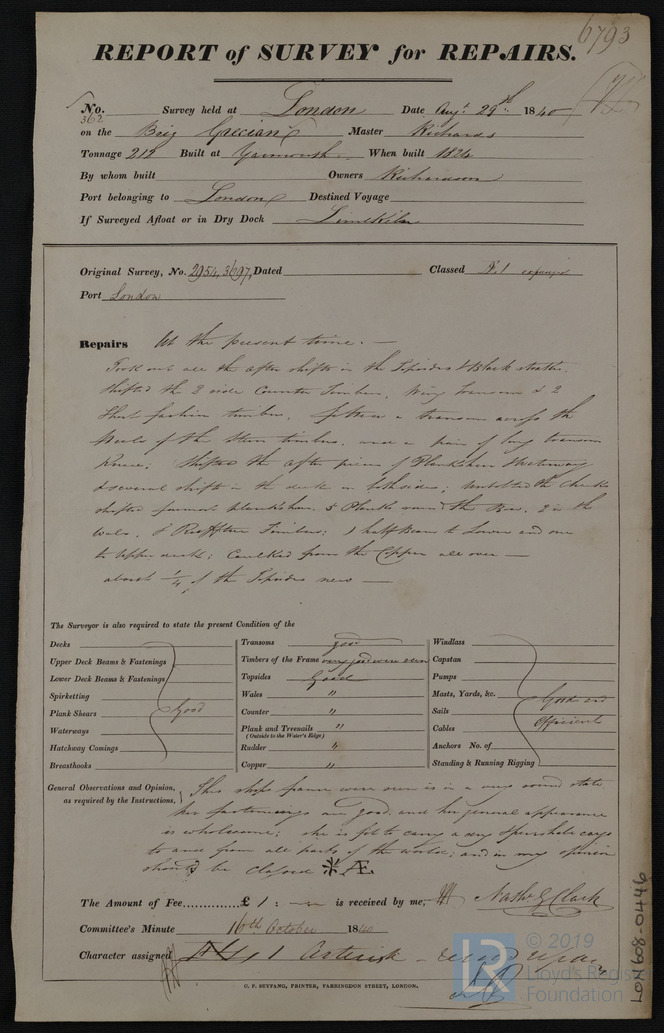 6793
REPORT of SURVEY for REPAIRS.
No. 362 Survey held at London Date Augt. 29th 1840
on the Brig Grecian Master Richards
Tonnage 212 Built at Yarmouth When built 1824
By whom built Owners Richardson
Port belonging to London Destined Voyage
If Surveyed Afloat or in Dry Dock Limekiln
Original Survey, No. 2954, 3697, Dated Classed Æ1 expunged
Port London
Repairs At the present time. —
Took out all the after shifts in the Topsides & Black strakes,
shifted the 2 side Counter Timbers, Wing transom & 2
Short fashion timbers, a transom across the
Heels of the Stern timbers, a pair of long transom
Knees; Shifted the after pieces of Plankshear Waterway
& several shifts in the deck on both sides; the
shifted plankshear. 5 Planks round the Bow, 2 in the
Wales, 8 Timbers; 1 half Beam to Lower and one
to Upper deck; Caulked from the Copper all over —
about 1/4 of the Topsides new —
The Surveyor is also required to state the present Condition of the
Decks
Upper Deck Beams & Fastenings
Lower Deck Beams & Fastenings
Spirketting
Plank Shears Good
Waterways
Hatchway Comings
Breasthooks
Transoms good
Timbers of the Frame very good were seen
Topsides Good
Wales "
Counter "
Plank and Treenails "
(Outside to the Water's Edge)
Rudder "
Copper "
Windlass
Capstan
Pumps
Masts, Yards, &c. Good and
Sails Efficient
Cables
Anchors No. of
Standing & Running Rigging
General Observations and Opinion,
as required by the Instructions,
This ships frame were seen is in a very sound state
her fastenings are good, and her general appearance
is wholesome; she is fit to carry a dry & perishable cargo
to and from all parts of the world; and in my opinion
should be classed ✻ Æ
The Amount of Fee £ 1 : — is received by me, Nathl. G Clark
Committee's Minute 16th October 1840
Character assigned 1 Asterisk
C. F. SEYFANG, PRINTER, FARRINGDON STREET, LONDON.
LON608-0446
LR
© 2019
Lloyd's Register
Foundation